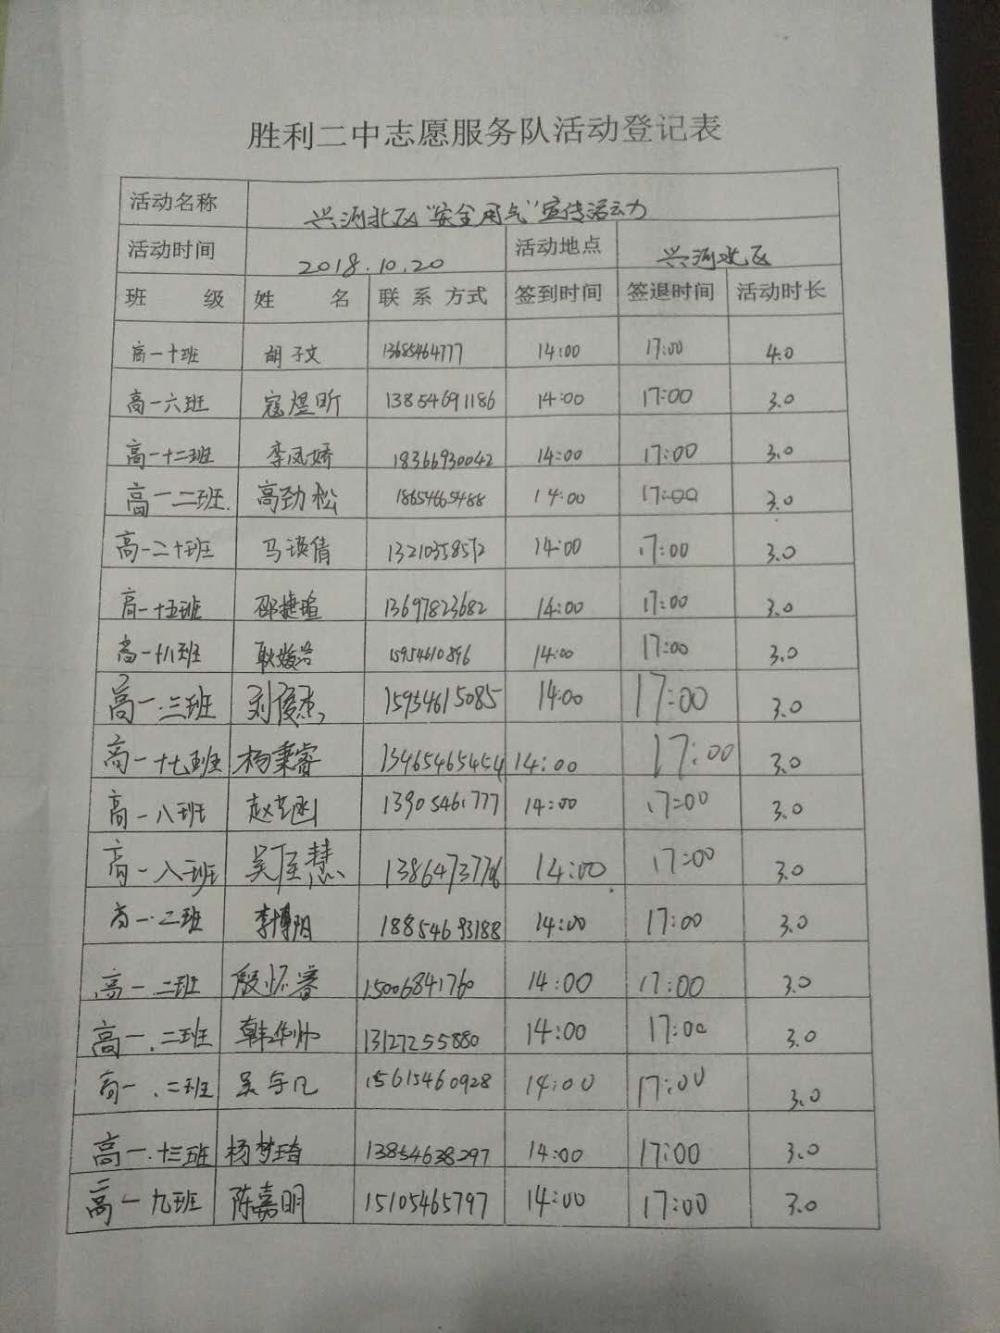 胜利二中志愿服务队活动登记表
活动名称 兴河北区“安全用气”宣传活动
活动时间 2018.10.20 活动地点 兴河北区
班 级 姓 名 联 系 方式 签到时间 签退时间 活动时长
高一十班 胡子文 13685464777 14:00 17:00 4.0
高一六班 寇煜昕 13854691186 14:00 17:00 3.0
高一十二班 李凤娇 18366930042 14:00 17:00 3.0
高一二班. 高劲松 18654665488 14:00 17:00 3.0
高一二十班 马瑛倩 13210358572 14:00 17:00 3.0
高一十五班 邵捷瑄 13697823682 14:00 17:00 3.0
高一十八班 耿媛 15954610896 14:00 17:00 3.0
高一.三班 刘俊杰 15954615085 14:00 17:00 3.0
高一十七班 杨秉睿 13465465454 14:00 17:00 3.0
高一八班 赵艺涵 13905461777 14:00 17:00 3.0
高一八班 吴至慧 1386473776 14:00 17:00 3.0
高一.二班 李博阳 18854693188 14:00 17:00 3.0
高一.二班 殷怀睿 15006841760 14:00 17:00 3.0
高一.二班 韩华帅 13127255880 14:00 17:00 3.0
高一.二班 吴宇凡 15615460928 14:00 17:00 3.0
高一.十三班 杨梦琦 13854638297 14:00 17:00 3.0
高一九班 陈嘉明 15105465797 14:00 17:00 3.0